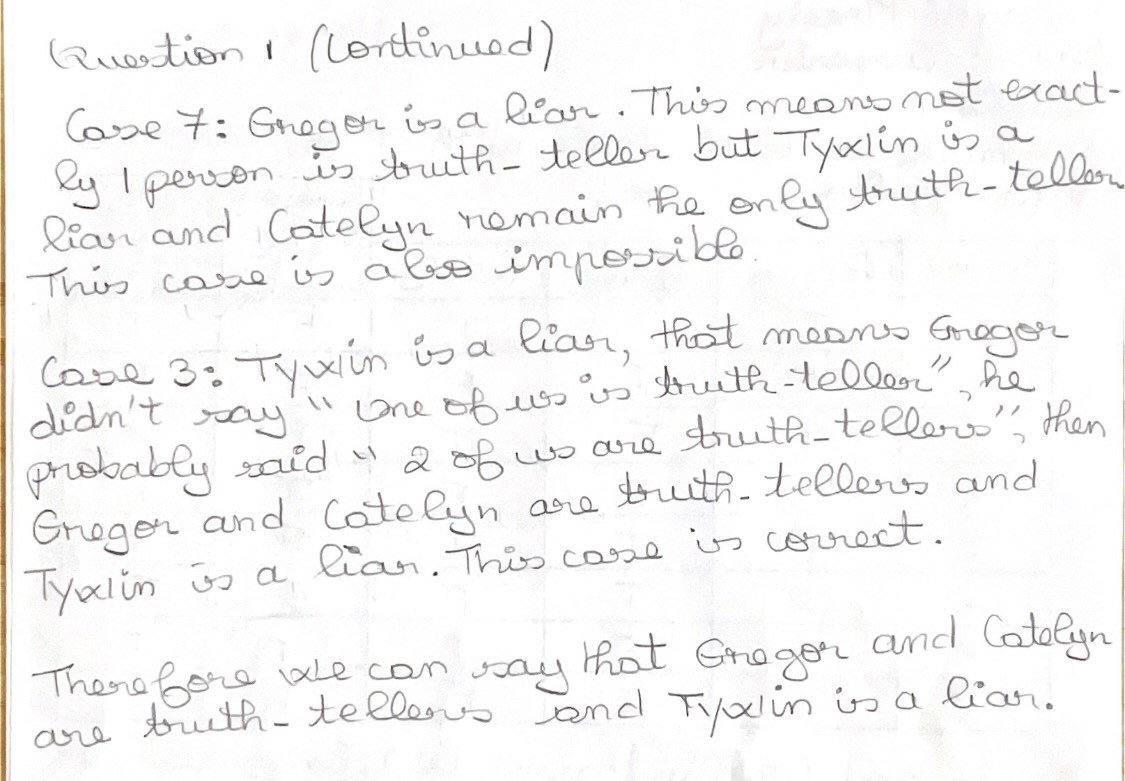 Question 1 (Continued)
Case 7: Gregor is a liar. This means not exact-
ly 1 person is truth-teller but Tywin is a
liar and Catelyn remain the only truth-teller
This case is also impossible.
Case 3: Tywin is a liar, that means Gregor
didn't say "One of us is truth-teller", he
probably said " 2 of us are truth-tellers", then
Gregor and Catelyn are truth-tellers and
Tywin is a liar. This case is correct.
Therefore we can say that Gregor and Catelyn
are truth-tellers and Tywin is a liar.